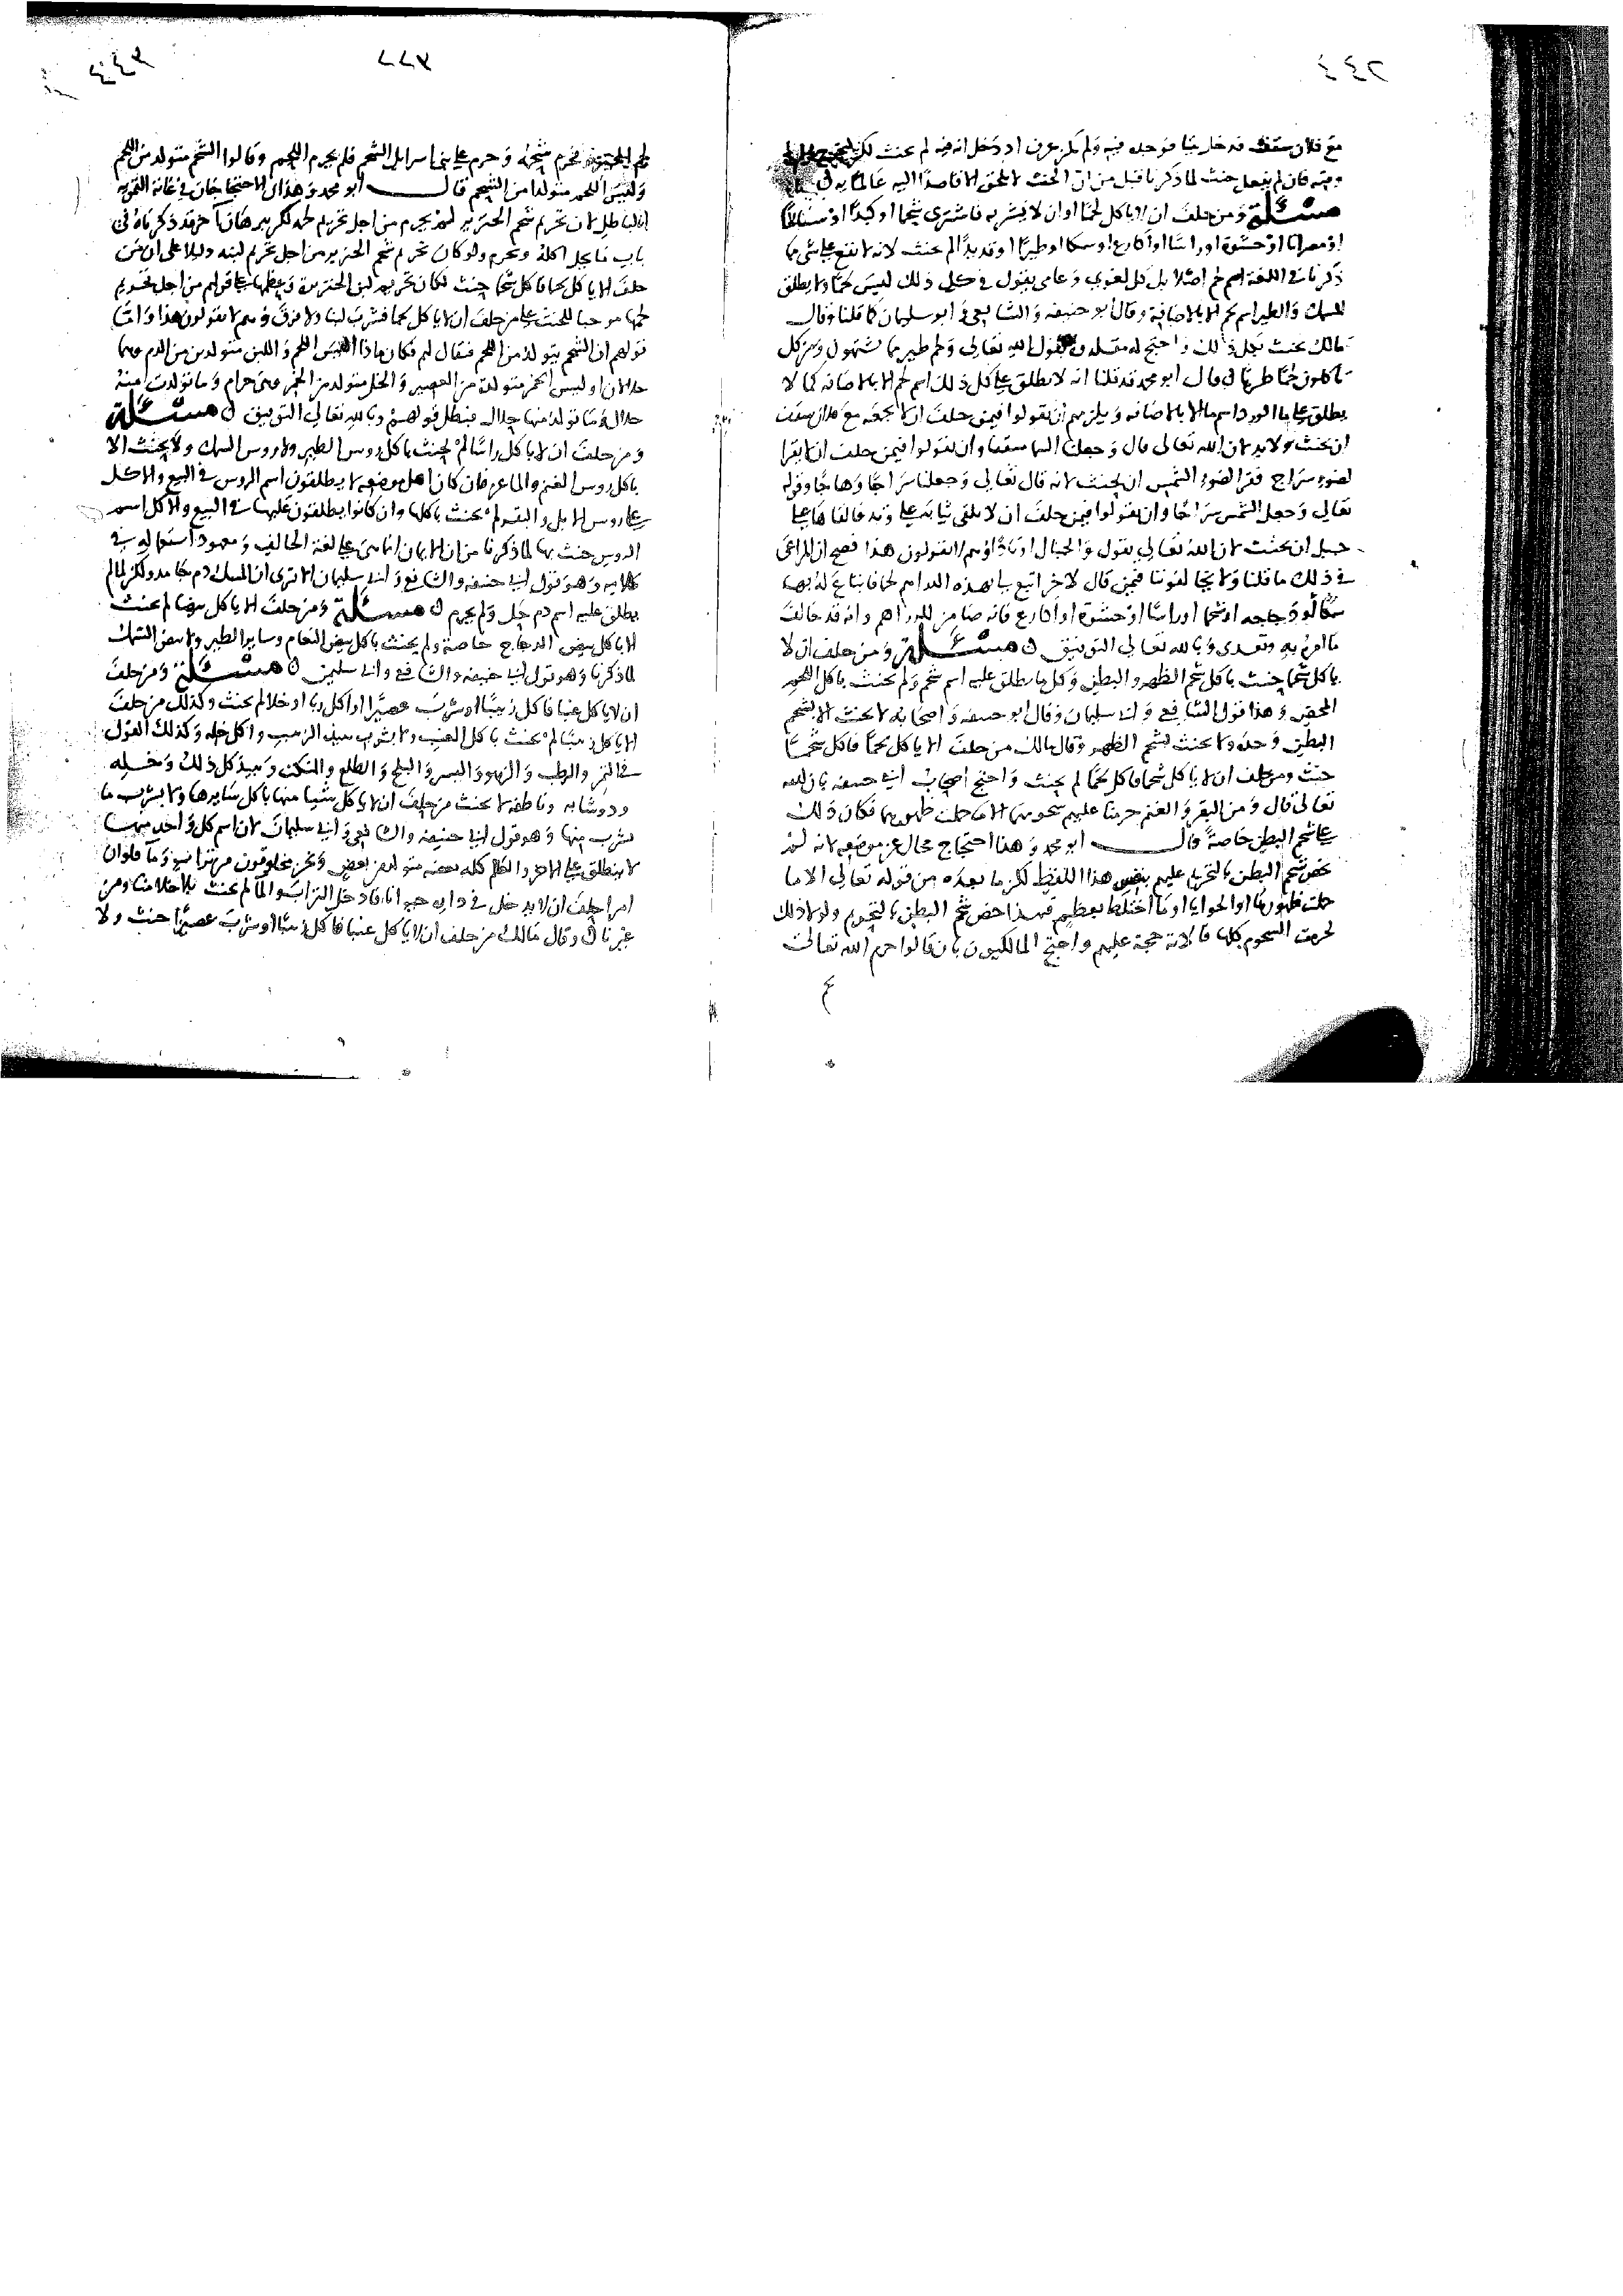 ٤٤٢
مع فلان سقف فدخل بيتا فوجده فيه ولم يكن عرف اذ دخل انه فيه لم يحنث لكن ليخرج
وقته فان لم يفعل حنث لما ذكرنا قبل من ان الحنث لا يلحق الا قاصدا اليه عالما به
مسئلة ومن حلف ان لا ياكل لحما او ان لا يشتريه فاشترى شحما او كبدا او سناما
او مصرانا او حشوة او راسا او اكارع او سمكا او طيرا او قديدا لم يحنث لانه لا يقع على شى مما
ذكرنا في اللغة اسم لحم اصلا بل كل لغوي وعامى يقول في كل ذلك ليس لحما ولا يطلق
للسمك والطير اسم لحم الا بالاضافة وقال ابو حنيفه والشافعى وابو سليمان كما قلنا وقال
مالك يحنث بكل ذلك واحتج له مقلدوه بقول الله تعالى ولحم طير مما يشتهون ومن كل
تاكلون لحما طريا قال ابو محمد قد قلنا انه لا يطلق على كل ذلك اسم لحم الا بالاضافه كما لا
يطلق على ما الورد اسم ما الا بالاضافه ويلزمهم ان يقولوا فيمن حلف ان لا يجمعه مع فلان سقف
ان يحنث ولا بد لان الله تعالى قال وجعلنا السما سقفا وان يقولوا فيمن حلف ان لا يقرا
لضوء سراج فقرا لضوء الشمس ان يحنث لانه قال تعالى وجعلنا سراجا وهاجا وقوله
تعالى وجعل الشمس سراجا وان يقولوا فيمن حلف ان لا يلقى ثيابه على وتد فالقاها على
جبل ان يحنث لان الله تعالى يقول والجبال اوتادا وهم لا يقولون هذا فصح ان المراعى
في ذلك ما قلنا ولا يختلفون فيمن قال لاخر ابتع بهذه الدراهم لحما فابتاع له بها
سمكا او دجاجه او شحما او راسا او حشوة او اكارع فانه ضامن للدراهم وانه قد خالف
ما امر به وتعدى وبالله تعالى التوفيق مسئلة ومن حلف ان لا
ياكل شحما حنث باكل شحم الظهر والبطن وكل ما يطلق عليه اسم شحم ولم يحنث باكل اللحم
المحض وهذا قول الشافعى وابى سليمان وقال ابو حنيفه واصحابه لا يحنث الا بشحم
البطن وحده ولا يحنث بشحم الظهر وقال مالك من حلف الا ياكل لحما فاكل شحما
حنث ومن حلف ان لا ياكل شحما فاكل لحما لم يحنث واحتج اصحاب ابى حنيفه بان الله
تعالى قال ومن البقر والغنم حرمنا عليهم شحومهما الا ما حملت ظهورهما فكان ذلك
على شحم البطن خاصة قال ابو محمد وهذا احتجاج محال عن موضعه لانه لم
يخص شحم البطن بالتحريم عليهم بنفس هذا اللفظ لكن بما بعده من قوله تعالى الا ما
حملت ظهورهما او الحوايا او ما اختلط بعظم فبهذا خص شحم البطن بالتحريم ولولا ذلك
لحرمت الشحوم كلها فالاية حجة عليهم واحتج المالكيون بان قالوا حرم الله تعالى
٤٤٣
لحم الخنزير فحرم شحمه وحرم على بنى اسرايل الشحم فلم يحرم اللحم وقالوا الشحم متولد من اللحم
وليس اللحم متولدا من الشحم قال ابو محمد وهذان الاحتجاجان في غاية التمويه
بالباطل لان تحريم شحم الخنزير لم يحرم من اجل تحريم لحمه لكن ببرهان اخر قد ذكرناه فى
باب ما يحل اكله ويحرم ولو كان تحريم شحم الخنزير من اجل تحريم لبنه دليلا على ان من
حلف الا ياكل لحما فاكل شحما حنث لكان تحريم لبن الخنزيرة وعظمها على قولهم من اجل تحريم
لحمها موجبا للحنث على من حلف ان لا ياكل لحما فشرب لبنا ولا فرق وهم لا يقولون هذا واما
قولهم ان الشحم يتولد من اللحم فيقال لهم فكان ماذا اليس اللحم واللبن متولدين من الدم وهما
حلالان او ليس الخمر متولدة من العصير والخل متولد من الخمر وهى حرام وما تولدت منه
حلال وما تولد منها حلال فبطل قولهم وبالله تعالى التوفيق مسئلة
ومن حلف ان لا ياكل راسا لم يحنث باكل روس الطير ولا روس السمك ولا يحنث الا
باكل روس الغنم والماعز فان كان اهل موضعه لا يطلقون اسم الروس في البيع والاكل
على روس الابل والبقر لم يحنث باكلها وان كانوا يطلقون عليها في البيع والاكل اسم
الروس حنث بها لما ذكرنا من ان الايمان انما هى على لغة الحالف ومعهود استعماله في
كلامه وهو قول ابى حنيفه والشافعى وابى سليمان الا ترى ان المسك دم جامد ولكن لما لم
يطلق عليه اسم دم حل ولم يحرم مسئلة ومن حلف الا ياكل بيضا لم يحنث
الا باكل بيض الدجاج خاصة ولم يحنث باكل بيض النعام وساير الطير ولا بيض السمك
لما ذكرنا وهو قول ابى حنيفه والشافعى وابى سليمن مسئلة ومن حلف
ان لا ياكل عنبا فاكل زبيبا او شرب عصيرا او اكل ربا او خلا لم يحنث وكذلك من حلف
الا ياكل زبيبا لم يحنث باكل العنب ولا بشرب نبيذ الزبيب واكل خله وكذلك القول
في التمر والرطب والزهو والبسر والبلح والطلع والمنكت ونبيذ كل ذلك وخله
ودوشابه وناطفه لا يحنث من حلف ان لا ياكل شيا منها باكل سايرها ولا بشرب ما
يشرب منها وهو قول ابى حنيفه والشافعى وابى سليمان لان اسم كل واحد منها
لا ينطلق على الاخر والعالم كله بعضه متولد من بعض ونحن مخلوقون من تراب وما فلو ان
امرا حلف ان لا يدخل في داره حيوانا فادخل التراب والما لم يحنث بلا خلاف منا ومن
غيرنا وقال مالك من حلف ان لا ياكل عنبا فاكل زبيبا او شرب عصيرا حنث ولا